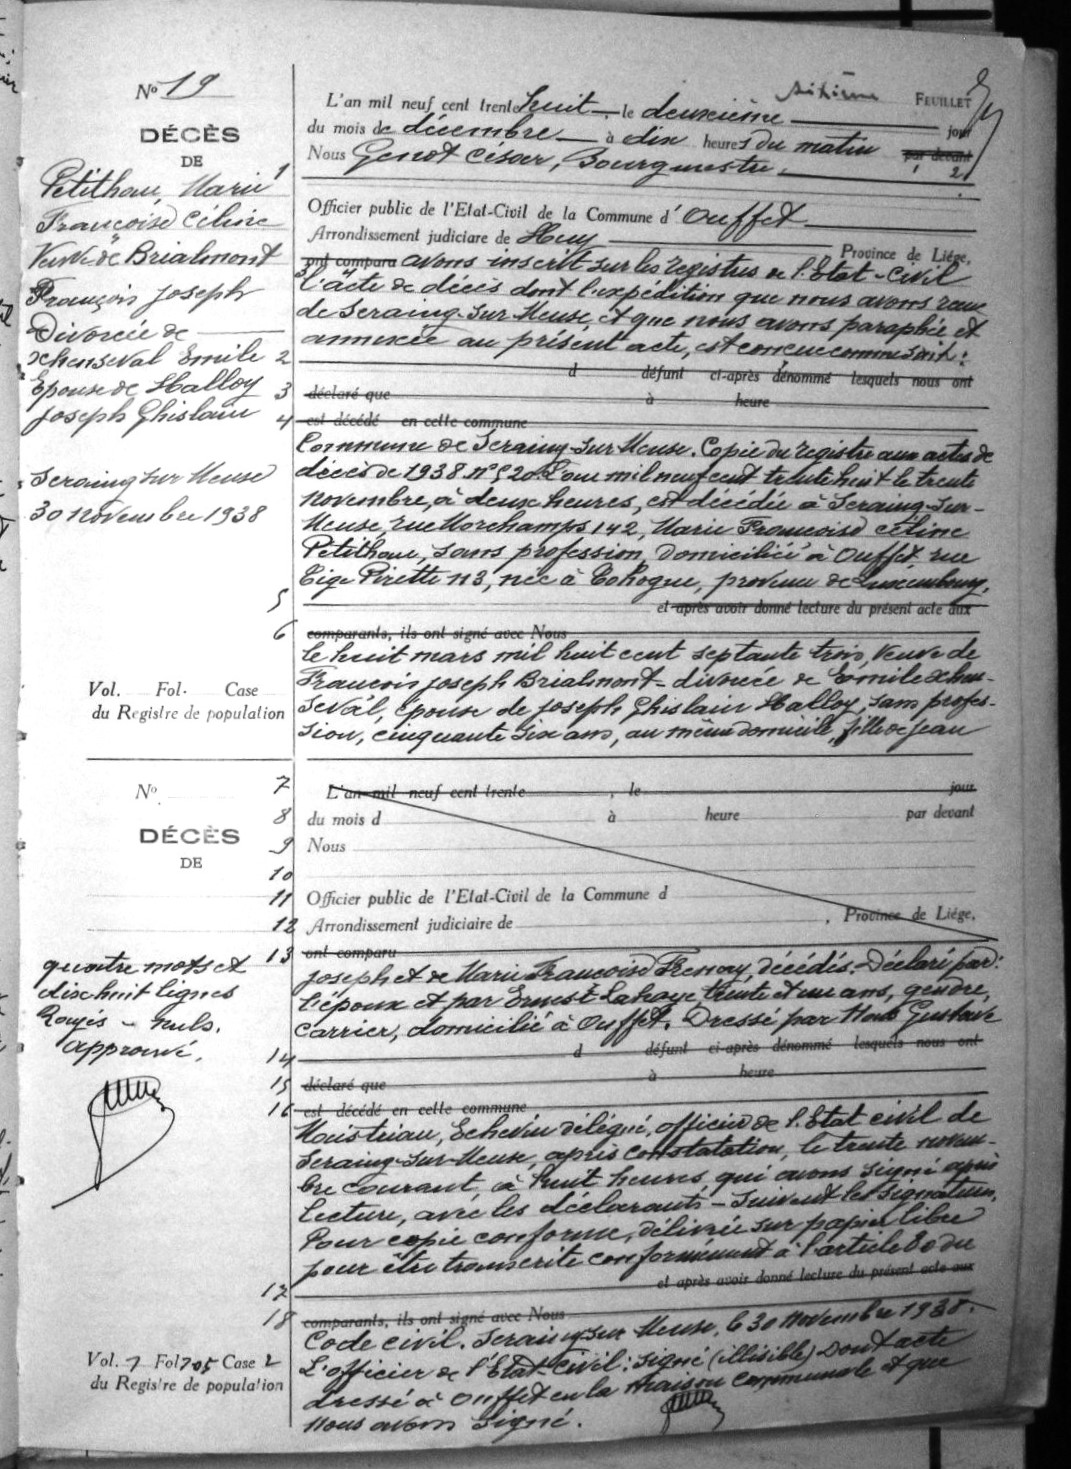 N° 19
DÉCÈS
DE
Petithan, Marie 1
Françoise Céline
Veuve de Brialmont
François Joseph
Divorcée de
Xhenseval Emile 2
Epouse de Halloy 3
Joseph Ghislain 4
Seraing sur Meuse
30 novembre 1938
5
6
Vol. Fol. Case
du Registre de population
sixième FEUILLET
L'an mil neuf cent trente huit, le deuxième jour
du mois de décembre à dix heures du matin par devant
Nous Genot César, Bourgmestre, 1 2
Officier public de l'Etat-Civil de la Commune d' Ouffet
Arrondissement judiciare de Huy Province de Liége,
ont comparu avons inscrit sur les registres de l'Etat-Civil
l'acte de décès dont l'expédition que nous avons reçue
de Seraing-sur-Meuse, et que nous avons paraphée et
annexée au présent acte, est conçue comme suit :
d défunt ci-après dénommé lesquels nous ont
déclaré que à heure
est décédé en cette commune
Commune de Seraing-sur-Meuse. Copie du registre aux actes de
décès de 1938 n° 520. L'an mil neuf cent trente huit le trente
novembre, à deux heures, est décédée à Seraing-sur-
Meuse, rue Morchamps 142, Marie Françoise Céline
Petithan, sans profession, domiciliée à Ouffet rue
Tige Pirette 113, née à Tohogne, province de Luxembourg,
et après avoir donné lecture du présent acte aux
comparants, ils ont signé avec Nous
le huit mars mil huit cent septante trois, Veuve de
François Joseph Brialmont - divorcée de Emile Xhen-
seval, épouse de Joseph Ghislain Halloy, sans profes-
sion, cinquante six ans, au même domicile, fille de Jean
N° 7
8
DÉCÈS 9
DE
10
11
12
quatre mots et 13
dix-huit lignes
Rayés - nuls.
Approuvé.
14
15
16
17
18
Vol. 7 Fol 705 Case 2
du Registre de population
L'an mil neuf cent trente , le jour
du mois d à heure par devant
Nous
Officier public de l'Etat-Civil de la Commune d
Arrondissement judiciaire de , Province de Liége,
ont comparu
Joseph et de Marie Françoise Fresnay, décédés. Déclaré par :
l'époux et par Ernest Lahaye, trente et un ans, gendre,
carrier, domicilié à Ouffet. Dressé par Nous Gustave
d défunt ci-après dénommé lesquels nous ont
déclaré que à heure
est décédé en cette commune
Maistriau, Echevin délégué, officier de l'Etat civil de
Seraing-sur-Meuse, après constatation, le trente novem-
bre courant, à huit heures, qui avons signé après
lecture, avec les déclarants - Suivent les signatures.
Pour copie conforme, délivrée sur papier libre
pour être transcrite conformément à l'article 80 du
et après avoir donné lecture du présent acte aux
comparants, ils ont signé avec Nous
Code civil. Seraing sur Meuse, le 30 novembre 1938.
L'officier de l'Etat-Civil : signé (illisible) Dont acte
dressé à Ouffet en la maison communale et que
nous avons signé.